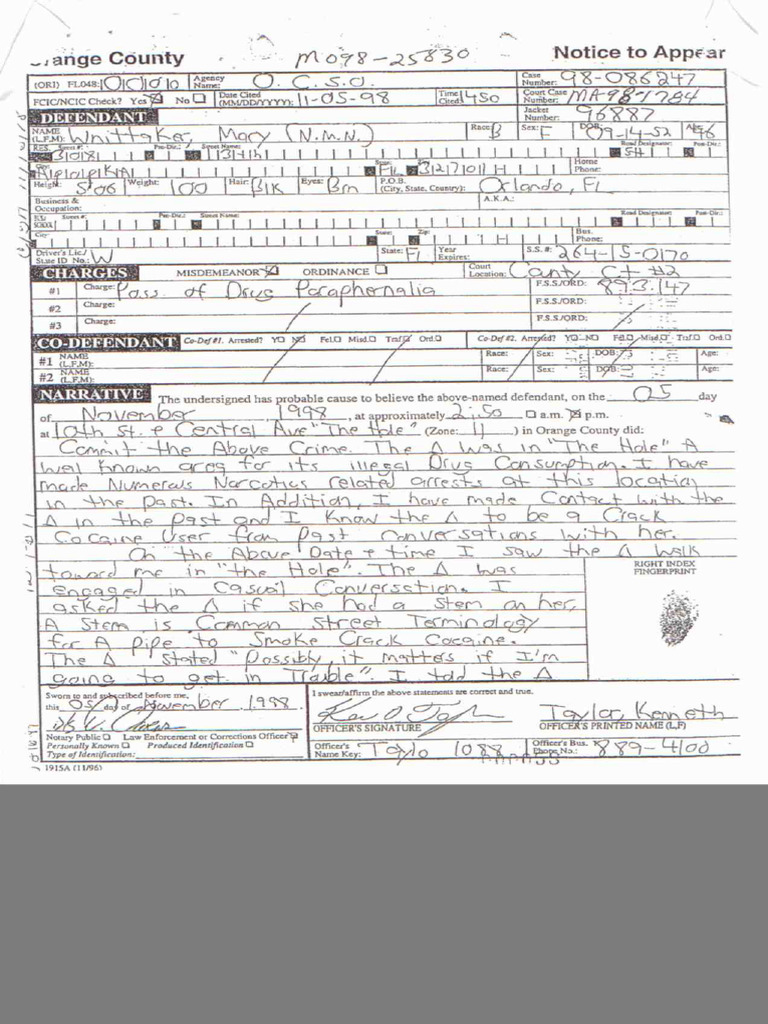 Orange County MO98-25830 Notice to Appear
(ORI) FL048: 0 0 0 0 Agency Name: O.C.S.O. Case Number: 98-086247
FCIC/NCIC Check? Yes No Date Cited (MM/DD/YYYY): 11-05-98 Time Cited: 1450 Court Case Number: MA98-1784
DEFENDANT Jacket Number: 96887
NAME (L,F,M): Whittaker, Mary (N.M.N.) Race: B Sex: F DOB: 09-14-52 Age: 46
RES. Street #: 3018 Pre-Dir.: Street Name: 13th Road Designator: St Post-Dir.:
City: Apopka State: FL Zip: 32701 H Home Phone:
Height: 5'06 Weight: 100 Hair: Blk Eyes: Brn P.O.B. (City, State, Country): Orlando, FL
Business & Occupation: A.K.A.:
Street #: Pre-Dir.: Street Name: Road Designator: Post-Dir.:
City: State: Zip: H Bus. Phone:
Driver's Lic./ State ID No.: W State: FL Year Expires: S.S.#: 264-15-0170
CHARGES MISDEMEANOR ORDINANCE Court Location: County Ct #2
#1 Charge: Poss. of Drug Paraphernalia F.S.S/ORD: 893.147
#2 Charge: F.S.S/ORD:
#3 Charge: F.S.S/ORD:
CO-DEFENDANT Co-Def #1. Arrested? Y N Fel. Misd. Traf. Ord. Co-Def #2. Arrested? Y N Fel. Misd. Traf. Ord.
#1 NAME (L,F,M): Race: Sex: DOB: Age:
#2 NAME (L,F,M): Race: Sex: DOB: Age:
NARRATIVE The undersigned has probable cause to believe the above-named defendant, on the 05 day
of November 1998, at approximately 2:50 a.m. p.m.
at 10th St. & Central Ave "The Hole" (Zone: 11) in Orange County did:
Commit the Above Crime. The Δ was in "The Hole" A
well known area for its illegal Drug Consumption. I have
made Numerous Narcotics related arrests at this location
in the past. In Addition, I have made Contact with the
Δ in the past and I Know the Δ to be a Crack
Cocaine User from Past conversations with her.
On the Above Date & time I saw the Δ walk
toward me in "the Hole". The Δ was
engaged in Casual Conversation. I
asked the Δ if she had a Stem on her.
A Stem is Common Street Terminology
for A Pipe to Smoke Crack Cocaine.
The Δ stated "Possibly, it matters if I'm
going to get in Trouble". I told the Δ
RIGHT INDEX FINGERPRINT
Sworn to and subscribed before me,
this 05 day of November 1998
Notary Public Law Enforcement or Corrections Officer
Personally Known Produced Identification
Type of Identification:
I swear/affirm the above statements are correct and true.
OFFICER'S SIGNATURE
Taylor, Kenneth
OFFICER'S PRINTED NAME (L,F)
Officer's Name Key: Taylo 1088 Officer's Bus. Phone No.: 889-4100
1915A (11/96)